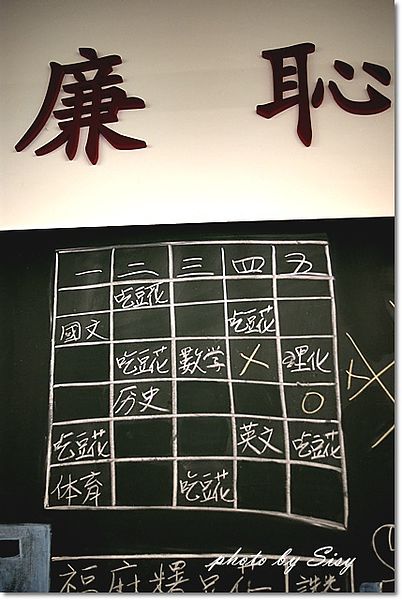 廉 恥
一 二 三 四 五
吃豆花
國文 吃豆花
吃豆花 數学 X 理化
历史 O
吃豆花 英文 吃豆花
体育 吃豆花
photo by Sisy
福麻糬